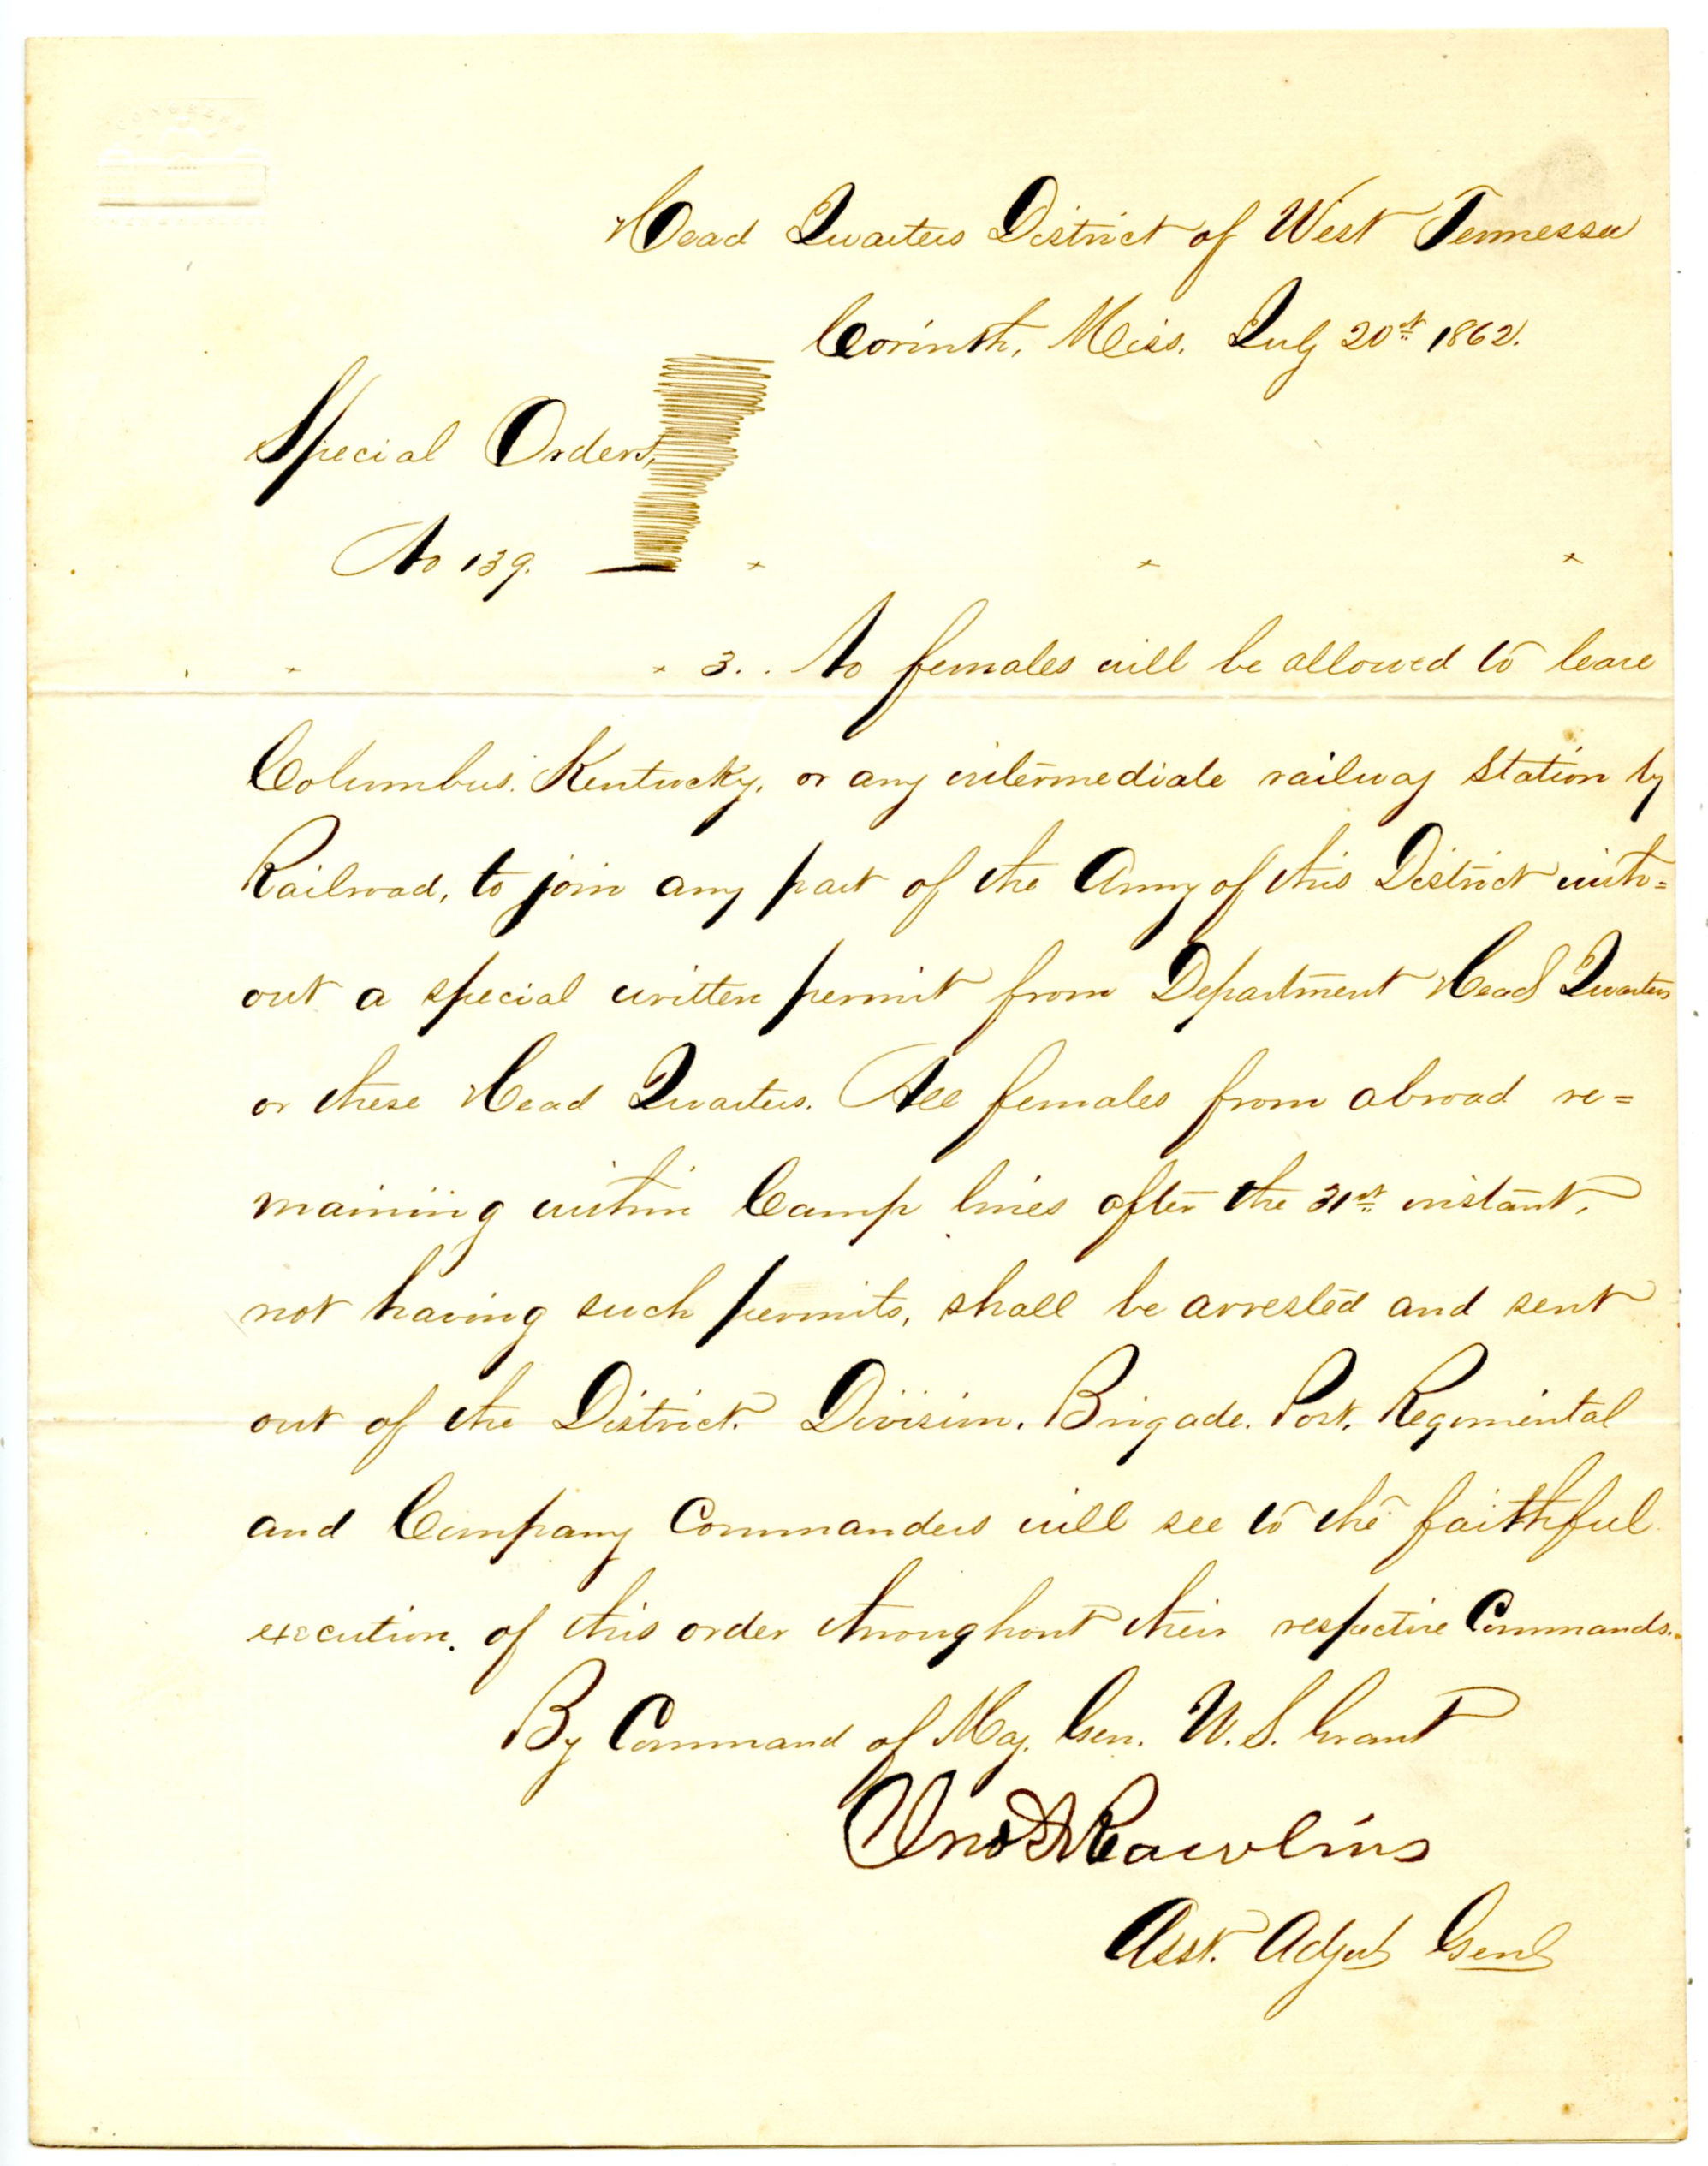 Head Quarters District of West Tennessee
Corinth, Miss. July 20th 1862.
Special Orders,
No 139.
3. . No females will be allowed to leave
Columbus. Kentucky, or any intermediate railway Station by
Railroad, to join any part of the Army of this District with=
out a special written permit from Department Head Quarters
or these Head Quarters. All females from abroad re=
maining within Camp lines after the 31st instant,
not having such permits, shall be arrested and sent
out of the District. Division. Brigade. Post. Regimental
and Company Commanders will see to the faithful
execution. of this order throughout their respective Commands.
By Command of Maj. Gen. U. S. Grant
Jno A Rawlins
Asst. Adjut Genl